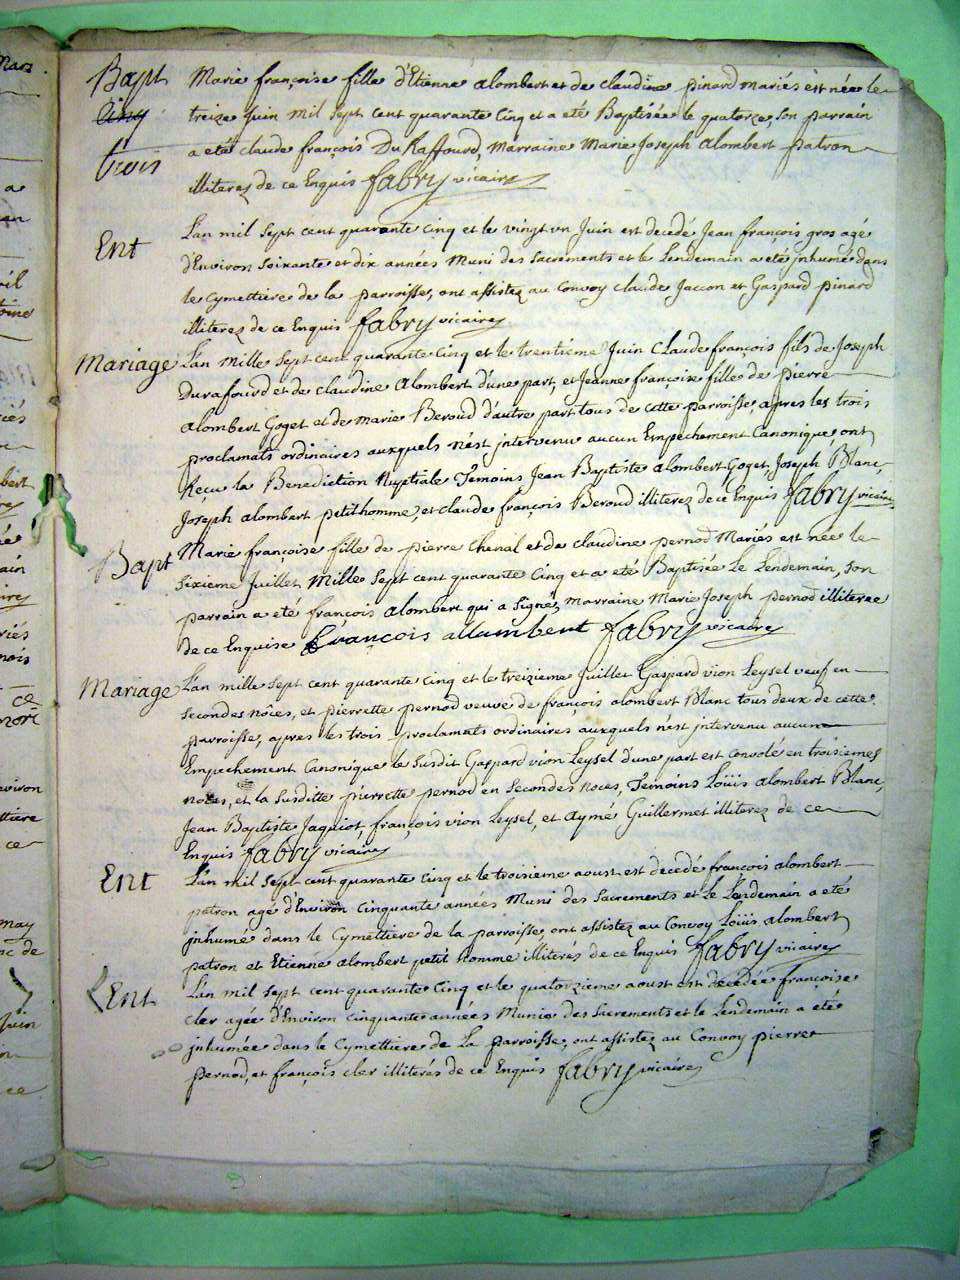 Bapt
Cinq
trois
Marie françoise fille d'Etienne alombert et de claudine pinard mariés est née le
treize Juin mil sept cent quarante Cinq et a eté Baptisée le quatorze, son parrain
a eté claude françois Du Raffourd, Marraine Marie Joseph alombert patron
illiterez de ce Enquis fabry vicaire
Ent
L'an mil sept cent quarante cinq et le vingt un Juin est decedé Jean françois gros agé
d'Environ soixante et dix années Muni des sacrements et le Lendemain a eté jnhumé dans
le cymettiere de la parroisse, ont assistez au Convoy claude Jaccon et Gaspard pinard
illiterez de ce Enquis fabry vicaire
Mariage
L'an mille sept cent quarante Cinq et le trentième Juin Claude françois fils de Joseph
Durafourd et de claudine alombert d'une part, et Jeanne françoise fille de pierre
alombert Goget et de marie Beroud d'autre part tous de cette parroisse, apres les trois
proclamats ordinaires auxquels n'est jntervenu aucun Empechement Canonique, ont
Reçu la Benediction Nuptiale Temoins Jean Baptiste alombert Goget, Joseph Blanc,
Joseph alombert petithomme, et claude françois Beroud illiterez de ce Enquis fabry vicaire
Bapt
Marie françoise fille de pierre Chenal et de claudine pernod Mariés est née le
sixieme Juillet Mille sept cent quarante Cinq et a eté Baptisée Le Lendemain, son
parrain a eté françois alombert qui a signé, marraine Marie Joseph pernod illiterae
de ce Enquise françois allambent fabry vicaire
Mariage
L'an mille sept cent quarante Cinq et le treizieme Juillet Gaspard vion Leysel veuf en
secondes nôces, et pierrette pernod veuve de françois alombert Blanc tous deux de cette
parroisse, apres les trois proclamats ordinaires auxquels n'est intervenu aucun
Empechement Canonique le susdit Gaspard vion Leysel d'une part est convolé en troisiemes
noces, et la susditte pierrette pernod en secondes noces, Temoins Loüis alombert Blanc,
Jean Baptiste Jaquiot, françois vion Leysel, et aymé Guillermet illiterez de ce
Enquis fabry vicaire
Ent
L'an mil sept cent quarante Cinq et le troisieme aoust est decedé françois alombert
patron agé d'Environ Cinquante années Muni des Sacrements et Le Lendemain a eté
jnhumé dans le Cymettiere de la parroisse, ont assistez au Convoy Loüis alombert
patron et Etienne alombert petit homme illiterés de ce Enquis fabry vicaire
Ent
L'an mil sept cent quarante Cinq et le quatorzieme aoust est decedée françoise
cler agée d'Environ cinquante années Munie des sacrements et le Lendemain a eté
jnhumée dans le Cymettiere de La parroisse, ont assistez au Convoy pierre
pernod, et françois cler illiterés de ce Enquis fabry vicaire